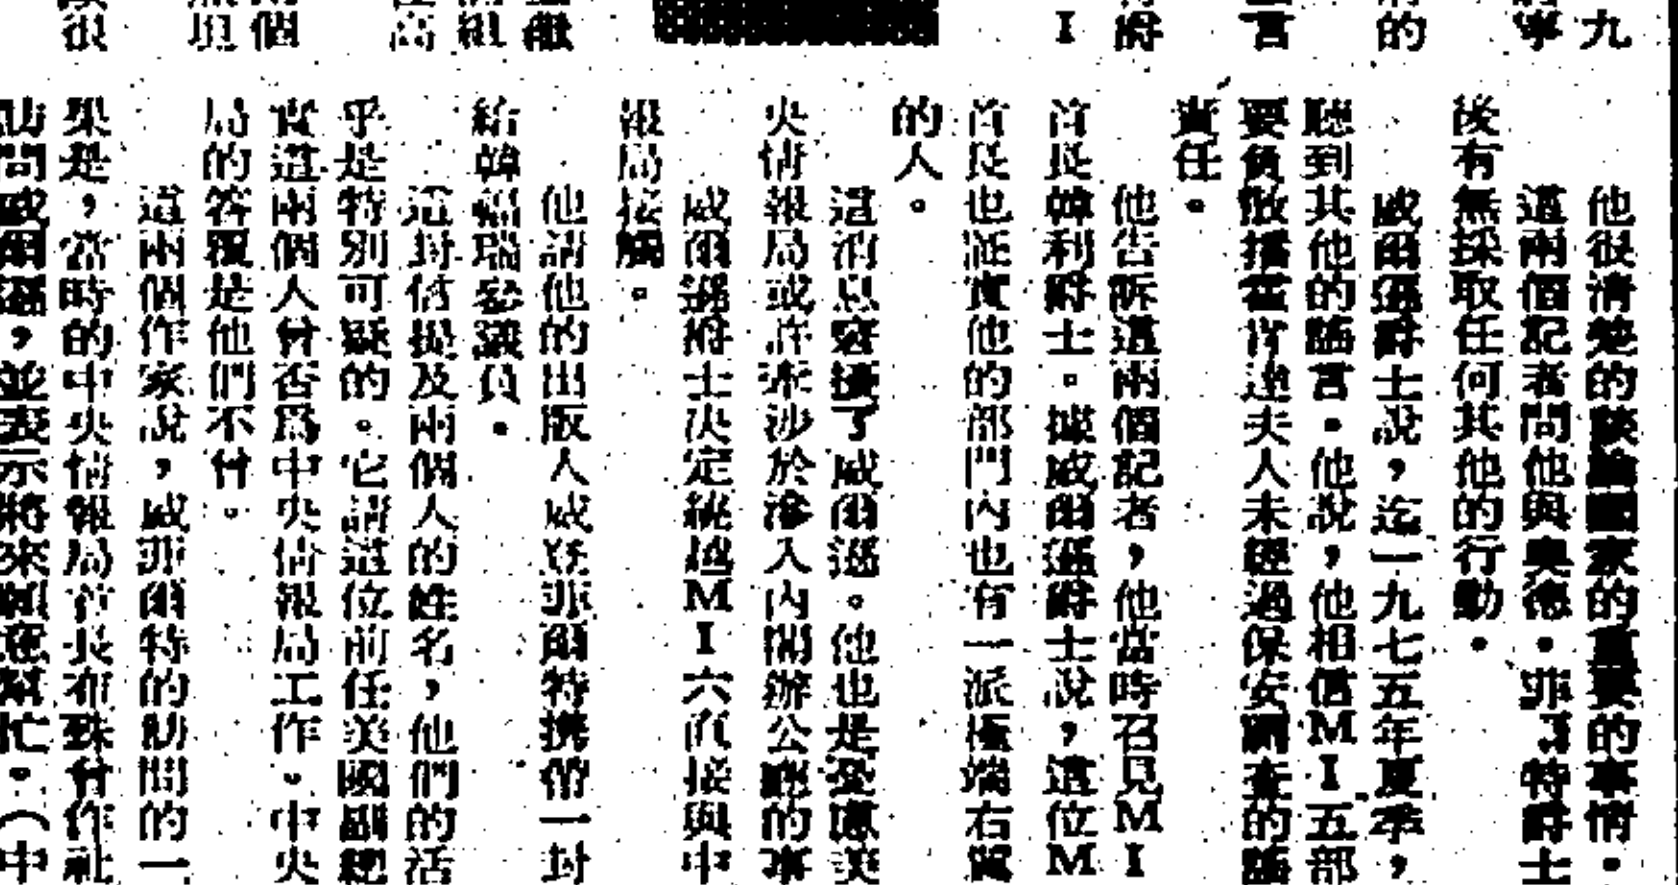 九
寧
的
言
爵
I
繼
組
高
個
坦
很
他很清楚的談論國家的重要的事情。
這兩個記者問他與奧德。菲 特爵士
後有無採取任何其他的行動。
威爾遜爵士說，迄一九七五年夏季，
聽到其他的謠言。他說，他相信MI五部
要負散播霍 肯達夫人未經過保安調查的謠
責任。
他告訴這兩個記者，他當時召見MI
首長韓利爵士。據威爾遜爵士說，這位M
首長也証實他的部門內也有一派極端右翼
的人。
這消息 擾了威爾遜。他也是憂慮美
央情報局或許牽涉於滲入內閣辦公廳的事
威爾遜爵士决定繞越MI六直接與中
報局接觸。
他請他的出版人威 菲爾特携帶一封
給韓福瑞參議員。
這封信提及兩個人的姓名，他們的活
乎是特別可疑的。它請這位前任美國副總
實這兩個人曾否爲中央情報局工作。中央
局的答覆是他們不曾。
這兩個作家說，威菲爾特的訪問的一
果是，當時的中央情報局首長布殊曾作社
訪問威爾遜，並表示將來願意幫忙。（中